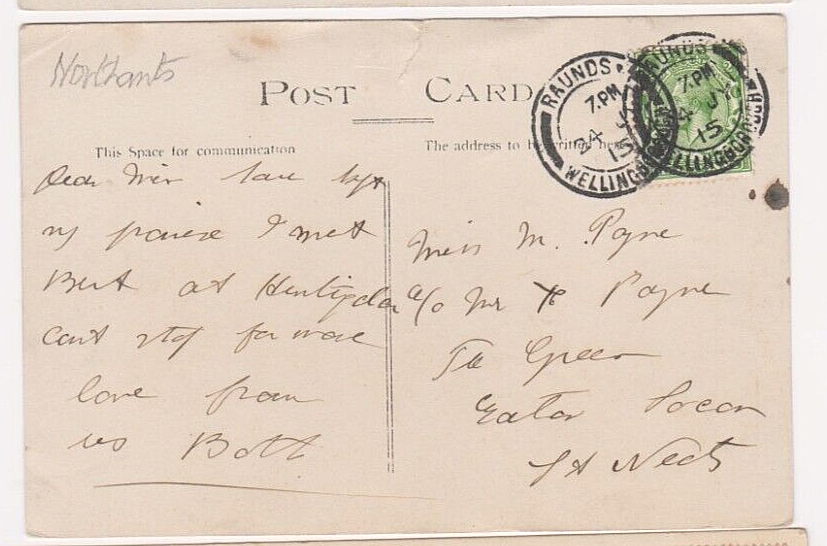 Northants
POST CARD
This Space for communication
The address to be written here
RAUNDS
7.PM
24 JY
15
WELLINGBORO
RAUNDS
7.PM
24 JY
15
WELLINGBOROUGH
Dear
I met
Bert at Huntigdon
cant stop for more
love from
us Both
Miss M. Payne
c/o Mr Payne
The Green
Eaton Socon
St Neots